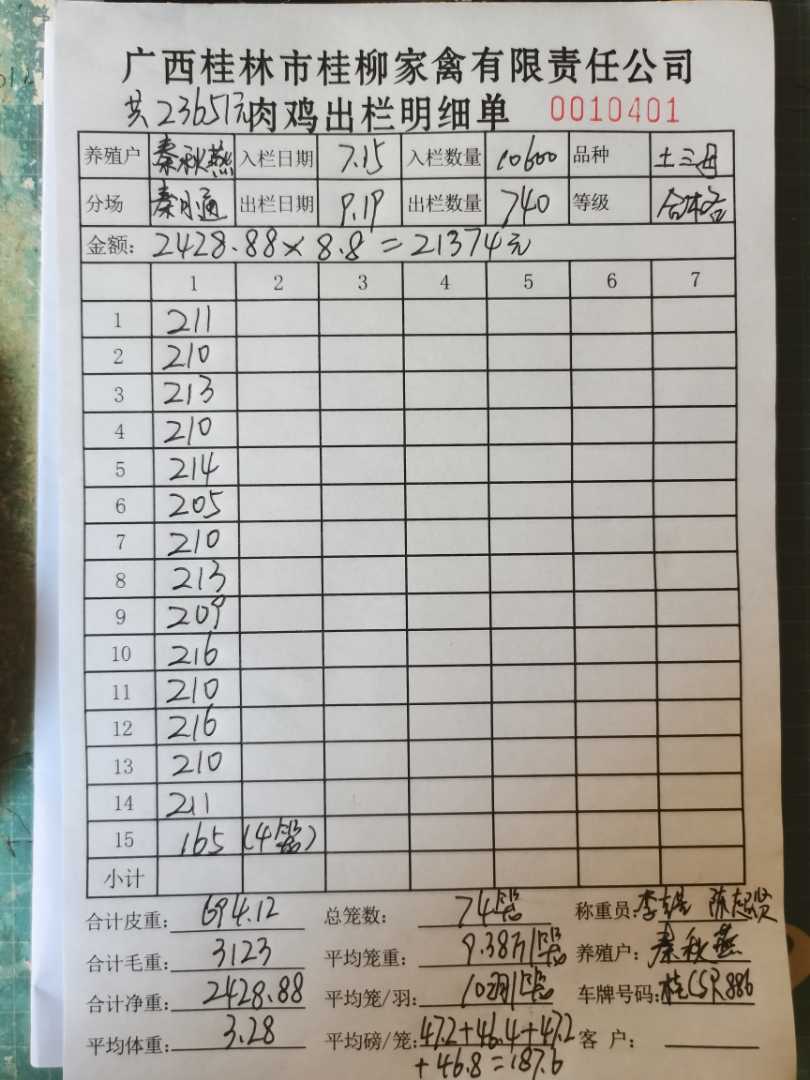 广西桂林市桂柳家禽有限责任公司
共23651元 肉鸡出栏明细单 0010401
养殖户 秦秋燕 入栏日期 7.15 入栏数量 10600 品种 土三母
分场 出栏日期 9.19 出栏数量 740 等级 合格
金额: 2428.88×8.8=21374元
1 2 3 4 5 6 7
1 211
2 210
3 213
4 210
5 214
6 205
7 210
8 213
9 209
10 216
11 210
12 216
13 210
14 211
15 165 (4笼)
小计
合计皮重: 694.12 总笼数: 74笼 称重员:
合计毛重: 3123 平均笼重: 9.38斤/笼 养殖户: 秦秋燕
合计净重: 2428.88 平均笼/羽: 10羽/笼 车牌号码:
平均体重: 3.28 平均磅/笼: 47.2+46.4+47.2 客 户:
+46.8=187.6